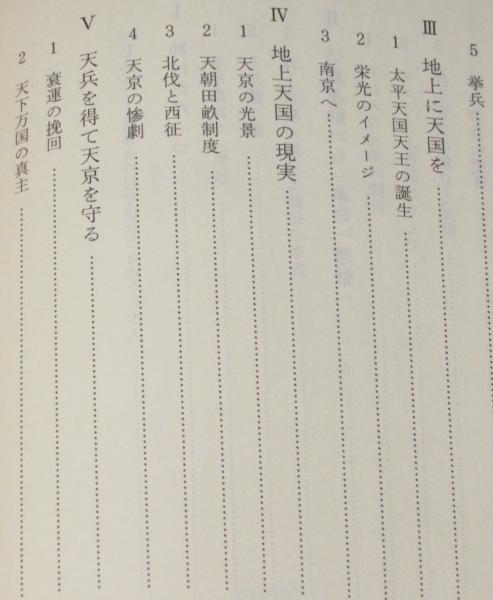 5 挙兵
Ⅲ 地上に天国を
1 太平天国天王の誕生
2 栄光のイメージ
3 南京へ
Ⅳ 地上天国の現実
1 天京の光景
2 天朝田畝制度
3 北伐と西征
4 天京の惨劇
Ⅴ 天兵を得て天京を守る
1 衰運の挽回
2 天下万国の真主